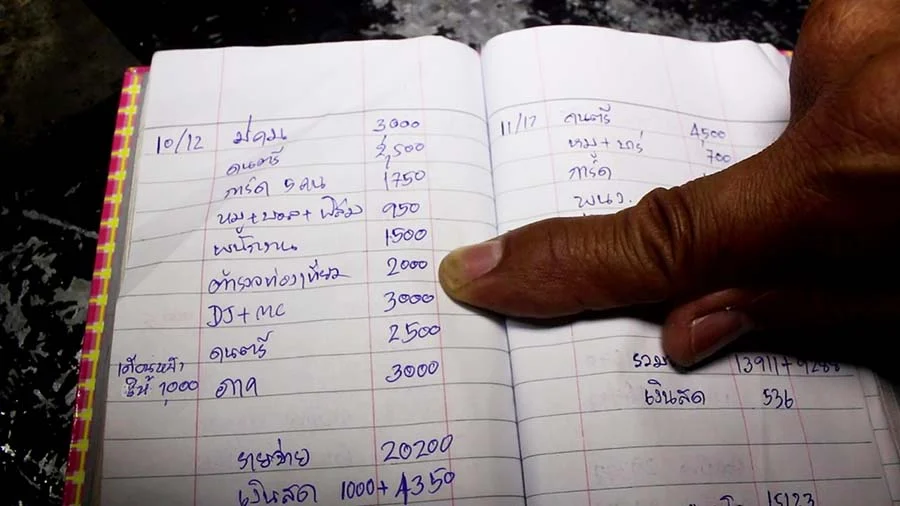 10/12 มโคม 3000
ดนตรี 2,500
การ์ด 5 คน 1750
หมู+บอล+ฟิล์ม 950
พนักงาน 1500
ตำรวจท่องเที่ยว 2000
DJ+MC 3000
ดนตรี 2500
เดือนหน้า
ให้ 1,000 ภาค 3000
รายจ่าย 20200
เงินสด 1000+4350
11/12 ดนตรี 4,500
หมู+บาร์ 700
การ์ด
พนง.
รวม 13911+9288
เงินสด 536
15123